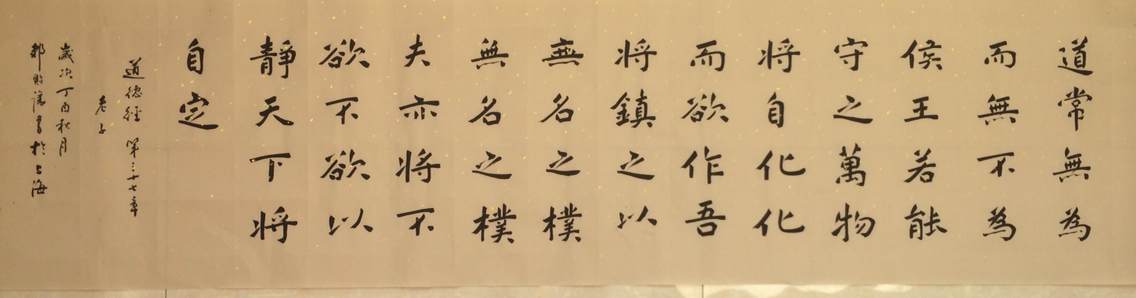 道常無為
而無不為
侯王若能
守之萬物
將自化化
而欲作吾
將鎮之以
無名之樸
無名之樸
夫亦將不
欲不欲以
靜天下將
自定
道德經 第三十七章
老子
歲次丁酉秋月
書於上海